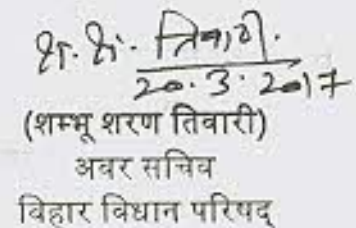 श. श. तिवारी.
20.3.2017
(शम्भू शरण तिवारी)
अवर सचिव
बिहार विधान परिषद्